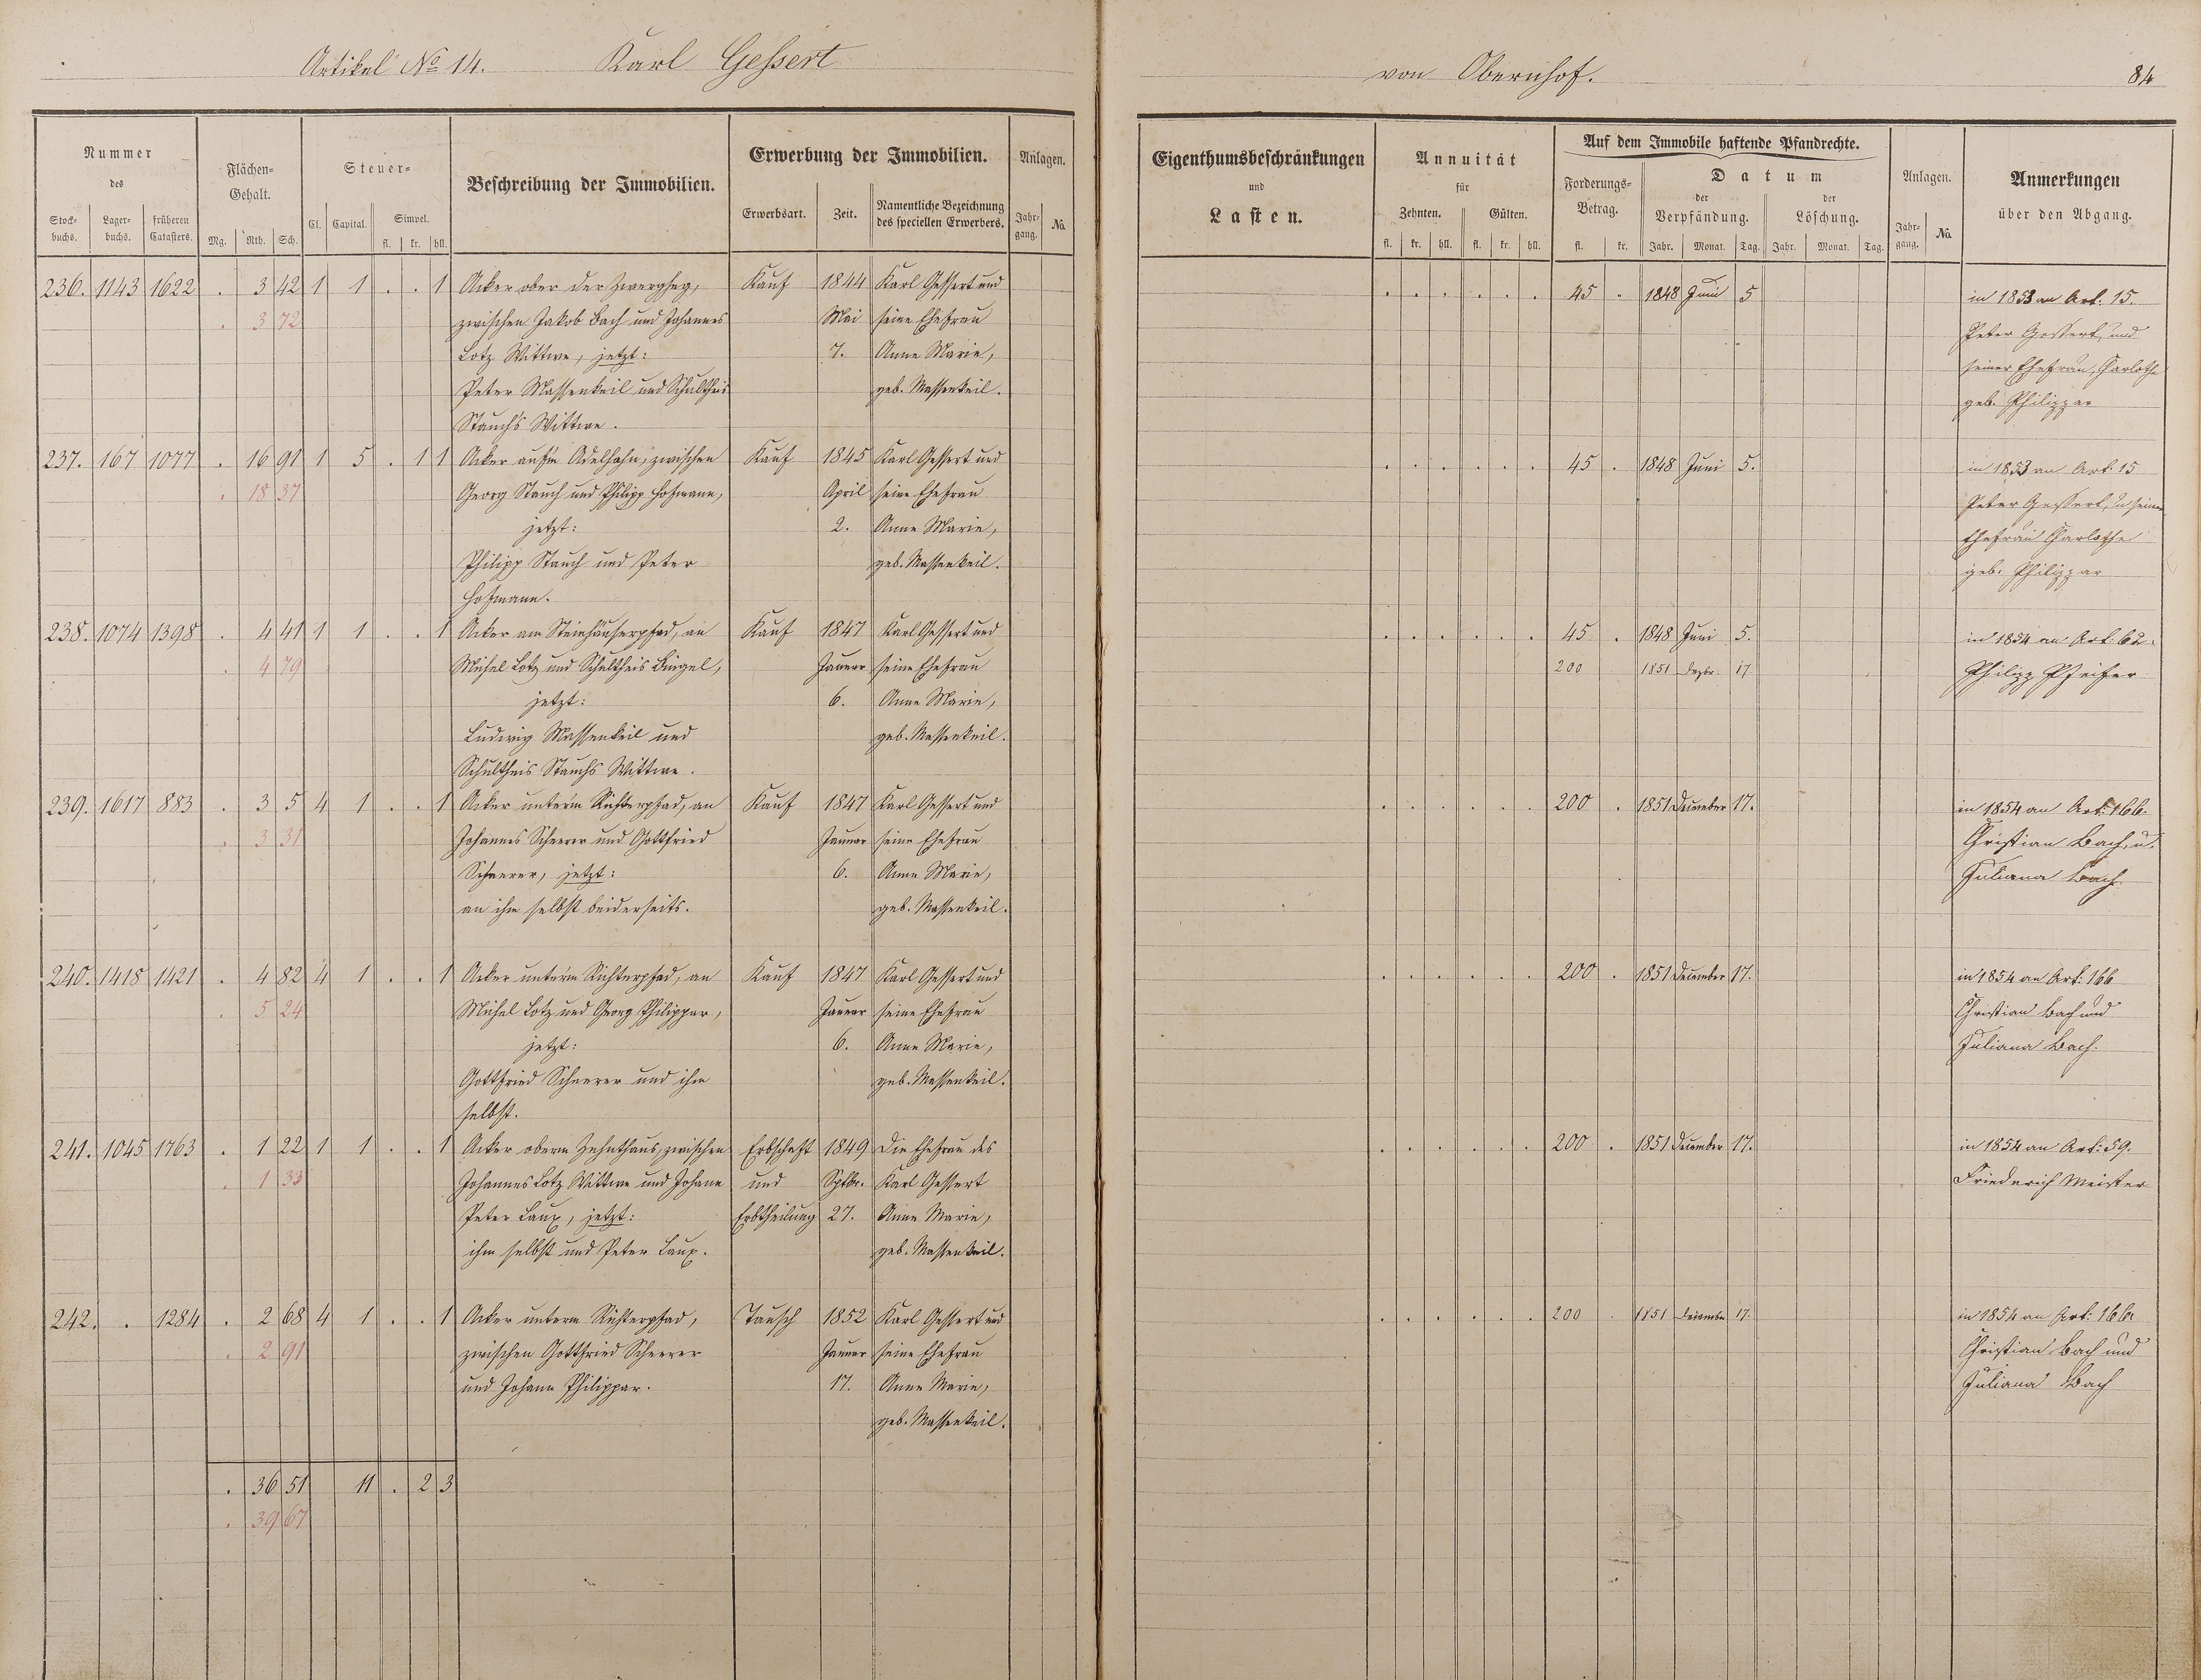 Artikel No 14. Karl Gessert
von Obernhof. 84
Nummer des
Stockbuchs. Lagerbuchs. früheren Catasters.
Flächen-Gehalt.
Mg. Rth. Sch.
Steuer-
Cl. Capital. Simpel.
fl. kr. hll.
Beschreibung der Immobilien.
Erwerbung der Immobilien.
Erwerbsart. Zeit. Namentliche Bezeichnung des speciellen Erwerbers.
Anlagen.
Jahrgang. No.
Eigenthumsbeschränkungen und Lasten.
Annuität für
Zehnten. Gülten.
fl. kr. hll. fl. kr. hll.
Auf dem Immobile haftende Pfandrechte.
Forderungs-Betrag.
fl. kr.
Datum
der Verpfändung. der Löschung.
Jahr. Monat. Tag. Jahr. Monat. Tag.
Anlagen.
Jahrgang. No.
Anmerkungen über den Abgang.
236. 1143 1622 . 3 42 1 1 . . 1 Acker ober der Zwerghey, Kauf 1844 Karl Gessert und
. 3 72 zwischen Jakob Bach und Johannes Mai seine Ehefrau
Lotz Wittwe, jetzt: 7. Anne Marie,
Peter Massenkeil und Schultheis geb. Massenkeil.
Stauch's Wittwe.
45 . 1848 Juni 5 in 1853 an Art. 15.
Peter Gessert, und
seiner Ehefrau, Charlothe
geb. Philippar
237. 167 1077 . 16 91 1 5 . 1 1 Acker auf'm Adelhahn, zwischen Kauf 1845 Karl Gessert und
. 18 37 Georg Stauch und Philipp Hofmann, April seine Ehefrau
jetzt: 2. Anne Marie,
Philipp Stauch und Peter geb. Massenkeil.
Hofmann.
45 . 1848 Juni 5. in 1853 an Art. 15
Peter Gessert, u seiner
Ehefrau Charlothe
geb. Philippar
238. 1074 1398 . 4 41 1 1 . . 1 Acker am Steinhäuserpfad, an Kauf 1847 Karl Gessert und
. 4 79 Michel Lotz und Schultheis Bingel, Januar seine Ehefrau
jetzt: 6. Anne Marie,
Ludwig Massenkeil und geb. Massenkeil.
Schultheis Stauchs Wittwe.
45 . 1848 Juni 5. in 1854 an Art. 62.
200 1851 Dezbr. 17. Philipp Pfeifer
239. 1617 883 . 3 5 4 1 . . 1 Acker unterm Richterpfad, an Kauf 1847 Karl Gessert und
. 3 31 Johannes Scheerer und Gottfried Januar seine Ehefrau
Scheerer, jetzt: 6. Anne Marie,
an ihm selbst beiderseits. geb. Massenkeil.
200 . 1851 December 17. in 1854 an Art. 166.
Christian Bach, u.
Juliana Bach
240. 1418 1421 . 4 82 4 1 . . 1 Acker unterm Richterpfad, an Kauf 1847 Karl Gessert und
. 5 24 Michel Lotz und Georg Philippar, Januar seine Ehefrau
jetzt: 6. Anne Marie,
Gottfried Scheerer und ihm geb. Massenkeil.
selbst.
200 . 1851 December 17. in 1854 an Art: 166
Christian Bach und
Juliana Bach.
241. 1045 1763 . 1 22 1 1 . . 1 Acker oberm Zehnthaus, zwischen Erbschaft 1849 Die Ehefrau des
. 1 33 Johannes Lotz Wittwe und Johann und Sptbr. Karl Gessert
Peter Laux, jetzt: Erbtheilung 27. Anne Marie,
ihm selbst und Peter Laux. geb. Massenkeil.
200 . 1851 December 17. in 1854 an Art: 59.
Friederich Meister
242. . 1284 . 2 68 4 1 . . 1 Acker unterm Richterpfad, Tausch 1852 Karl Gessert und
. 2 91 zwischen Gottfried Scheerer Januar seine Ehefrau
und Johann Philippar. 17. Anne Marie,
geb. Massenkeil.
200 . 1851 December 17. in 1854 an Art: 166.
Christian Bach und
Juliana Bach
. 36 51 11 . 2 3
. 39 67